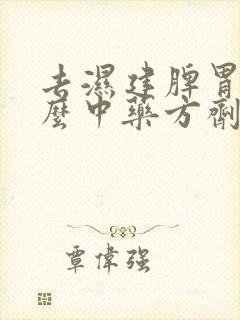 去濕建脾胃
麼中藥方劑
覃偉强